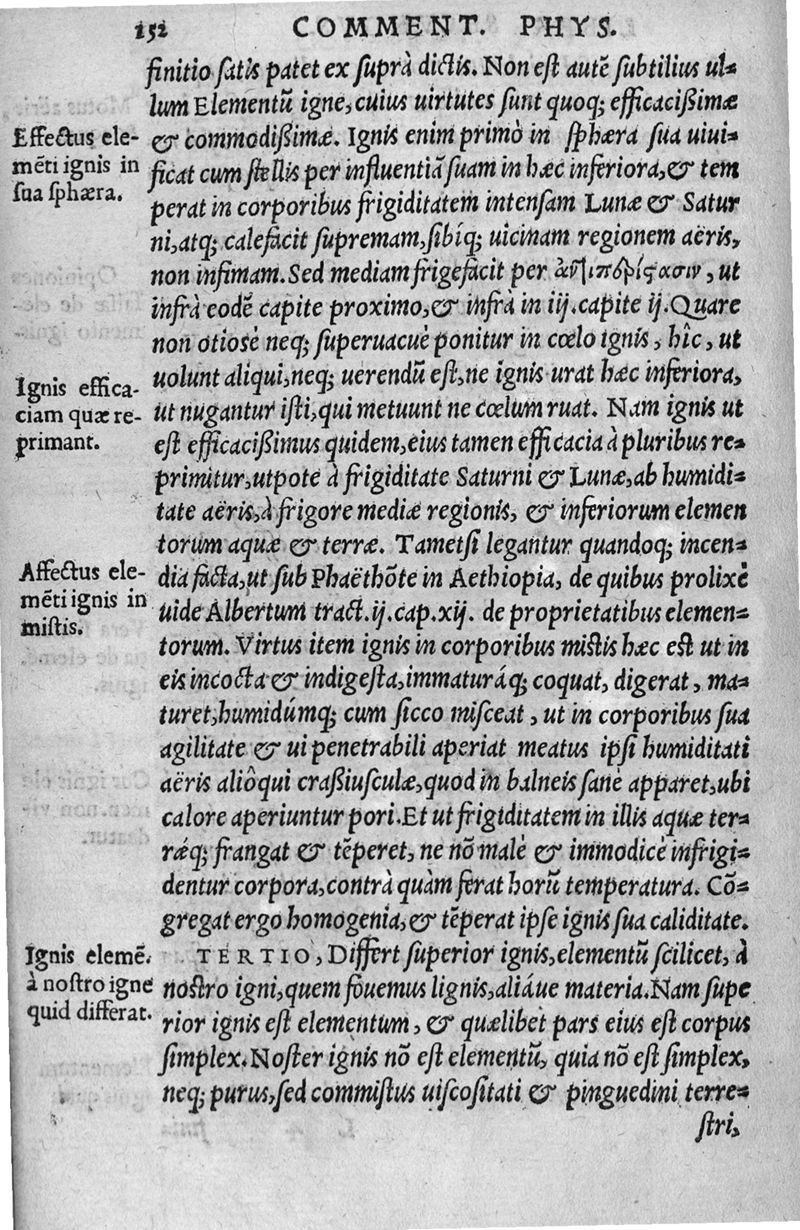 152 COMMENT. PHYS.
finitio satis patet ex suprà dictis. Non est autē subtilius ul-
lum Elementū igne, cuius uirtutes sunt quoq; efficacißimæ
Effectus ele-
mēti ignis in
sua sphæra.
& commodißimæ. Ignis enim primò in sphæra sua uiui-
ficat cum stellis per influentiā suam in hæc inferiora, & tem
perat in corporibus frigiditatem intensam Lunæ & Satur
ni, atq; calefacit supremam, sibíq; uicinam regionem aëris,
non infimam. Sed mediam frigefacit per ἀντιπερίστασιν, ut
infrà eodē capite proximo, & infrà in iij. capite ij. Quare
non otiosè neq; superuacuè ponitur in cœlo ignis, hîc, ut
Ignis effica-
ciam quæ re-
primant.
uolunt aliqui, neq; uerendū est, ne ignis urat hæc inferiora,
ut nugantur isti, qui metuunt ne cœlum ruat. Nam ignis ut
est efficacißimus quidem, eius tamen efficacia à pluribus re-
primitur, utpote à frigiditate Saturni & Lunæ, ab humidi-
tate aëris, à frigore mediæ regionis, & inferiorum elemen
torum aquæ & terræ. Tametsi legantur quandoq; incen-
Affectus ele-
mēti ignis in
mistis.
dia facta, ut sub Phaëthōte in Aethiopia, de quibus prolixè
uide Albertum tract. ij. cap. xij. de proprietatibus elemen-
torum. Virtus item ignis in corporibus mistis hæc est ut in
eis incocta & indigesta, immaturáq; coquat, digerat, ma-
turet, humidúmq; cum sicco misceat, ut in corporibus sua
agilitate & ui penetrabili aperiat meatus ipsi humiditati
aëris aliôqui craßiusculæ, quod in balneis sanè apparet, ubi
calore aperiuntur pori. Et ut frigiditatem in illis aquæ ter-
ræq; frangat & tēperet, ne nō malè & immodicè infrigi-
dentur corpora, contrà quàm ferat horū temperatura. Cō-
gregat ergo homogenia, & tēperat ipse ignis sua caliditate.
Ignis elemē.
à nostro igne
quid differat.
TERTIO, Differt superior ignis, elementū scilicet, à
nostro igni, quem fouemus lignis, aliáue materia. Nam supe
rior ignis est elementum, & quælibet pars eius est corpus
simplex. Noster ignis nō est elementū, quia nō est simplex,
neq; purus, sed commistus uiscositati & pinguedini terre-
stri,